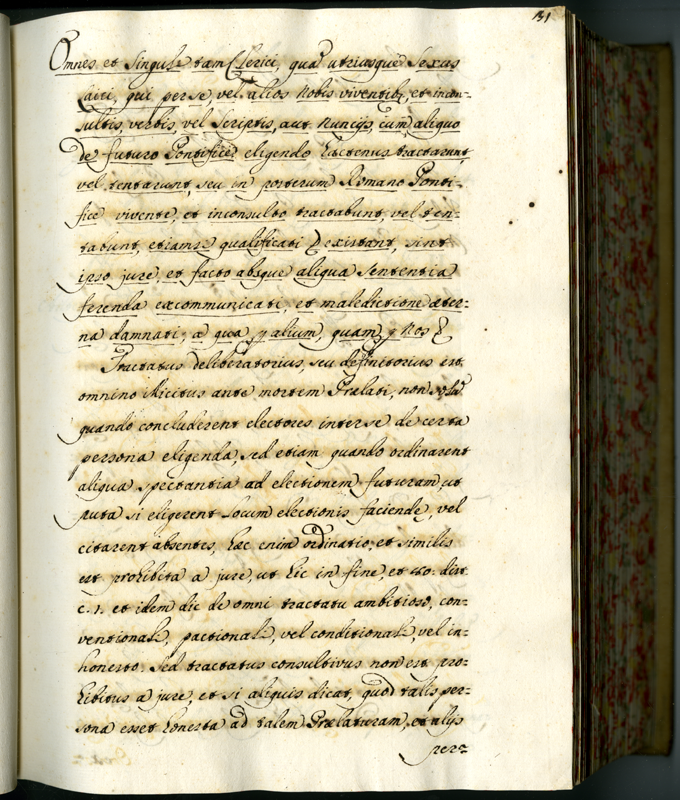 131
Omnes et Singuli tam Clerici, quam utriusque Sexus
Laici, qui per se, vel alios nobis viventib9 et incon-
sultis, verbis, vel Scriptis, aut Nuncijs, cum aliquo
de futuro Pontifice eligendo hactenus tractarunt,
vel tentarunt, seu in posterum Romano Ponti-
fice vivente, et inconsulto tractabunt, vel ten-
tabunt, etiamsi qualificati existant, sint
ipso jure, et facto absque aliqua Sententia
ferenda excommunicati, et maledictione æter-
na damnati; a qua, p alium, quam p Nos
Tractatus deliberatorius, seu definitorius est
omnino illicitus ante mortem Prælati, non solū
quando concluderent electores inter se de certa
persona eligenda, sed etiam quando ordinarent
aliqua spectantia ad electionem futuram, ut
puta si eligerent Locum electionis faciende, vel
citarent absentes, hæc enim ordinatio, et similis
est prohibita a jure, ut hic in fine, et 50. dist
c. 1. et idem dic de omni tractatu ambitioso, con-
ventionali, pactionali, vel conditionali, vel in-
honesto. Sed tractatus consultivus non est pro-
hibitus a jure, et si aliquis dicat, quod talis per-
sona esset honesta ad talem Prælaturam, et alijs
per-